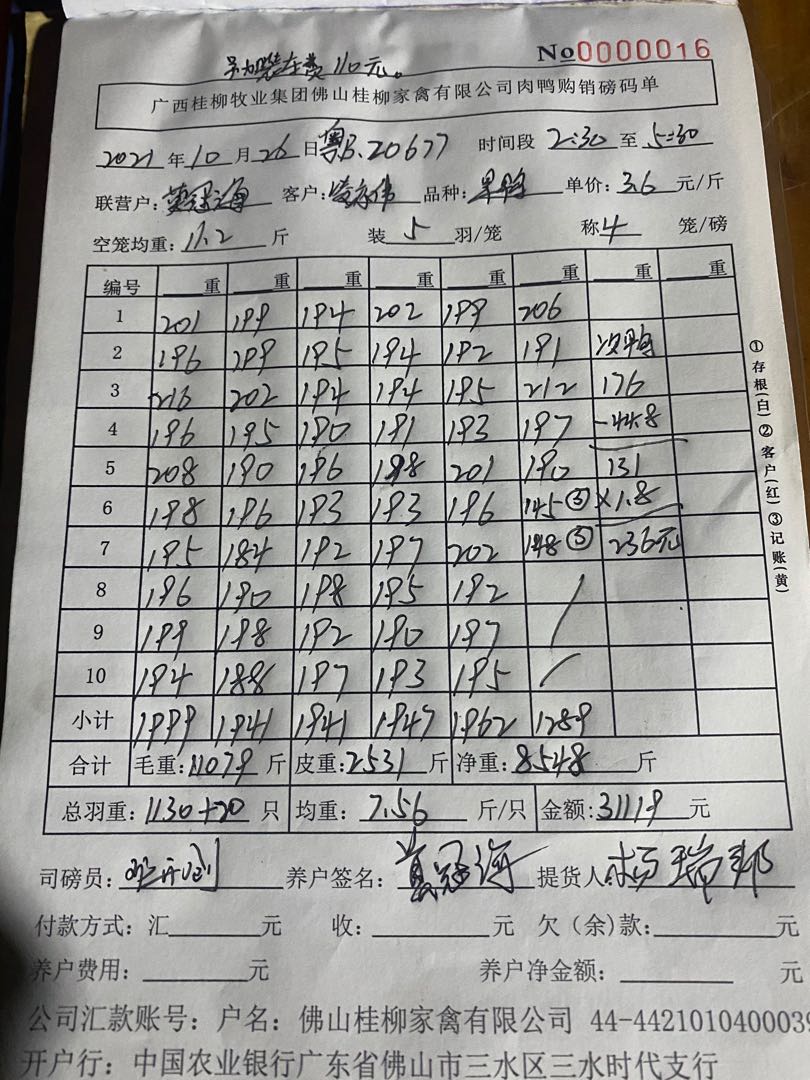 另加装车费110元。
No0000016
广西桂柳牧业集团佛山桂柳家禽有限公司肉鸭购销磅码单
2021年10月26日粤B.20677 时间段 2:30 至 5:30
联营户: 黄冠海 客户: 品种: 果鸭 单价: 3.6 元/斤
空笼均重: 11.2 斤 装 5 羽/笼 称 4 笼/磅
编号 重 重 重 重 重 重 重 重
1 201 199 194 202 199 206
2 196 199 195 194 192 191 次鸭
3 216 202 194 194 195 212 176
4 196 195 190 191 193 197 -44.8
5 208 190 196 198 201 190 131
6 198 196 193 193 196 145③ ×1.8
7 195 184 192 197 202 148③ 236元
8 196 190 198 195 192 /
9 199 198 192 190 197 /
10 194 188 197 193 195 /
小计 1999 1941 1941 1947 1962 1289
合计 毛重:11079 斤 皮重:2531 斤 净重:8548 斤
总羽重:1130+20 只 均重: 7.56 斤/只 金额:31119 元
司磅员: 养户签名: 黄冠海 提货人:杨瑞邦
付款方式:汇 元 收: 元 欠(余)款: 元
养户费用: 元 养户净金额: 元
公司汇款账号:户名:佛山桂柳家禽有限公司 44-44210104000039
开户行:中国农业银行广东省佛山市三水区三水时代支行
①存根(白)②客户(红)③记账(黄)